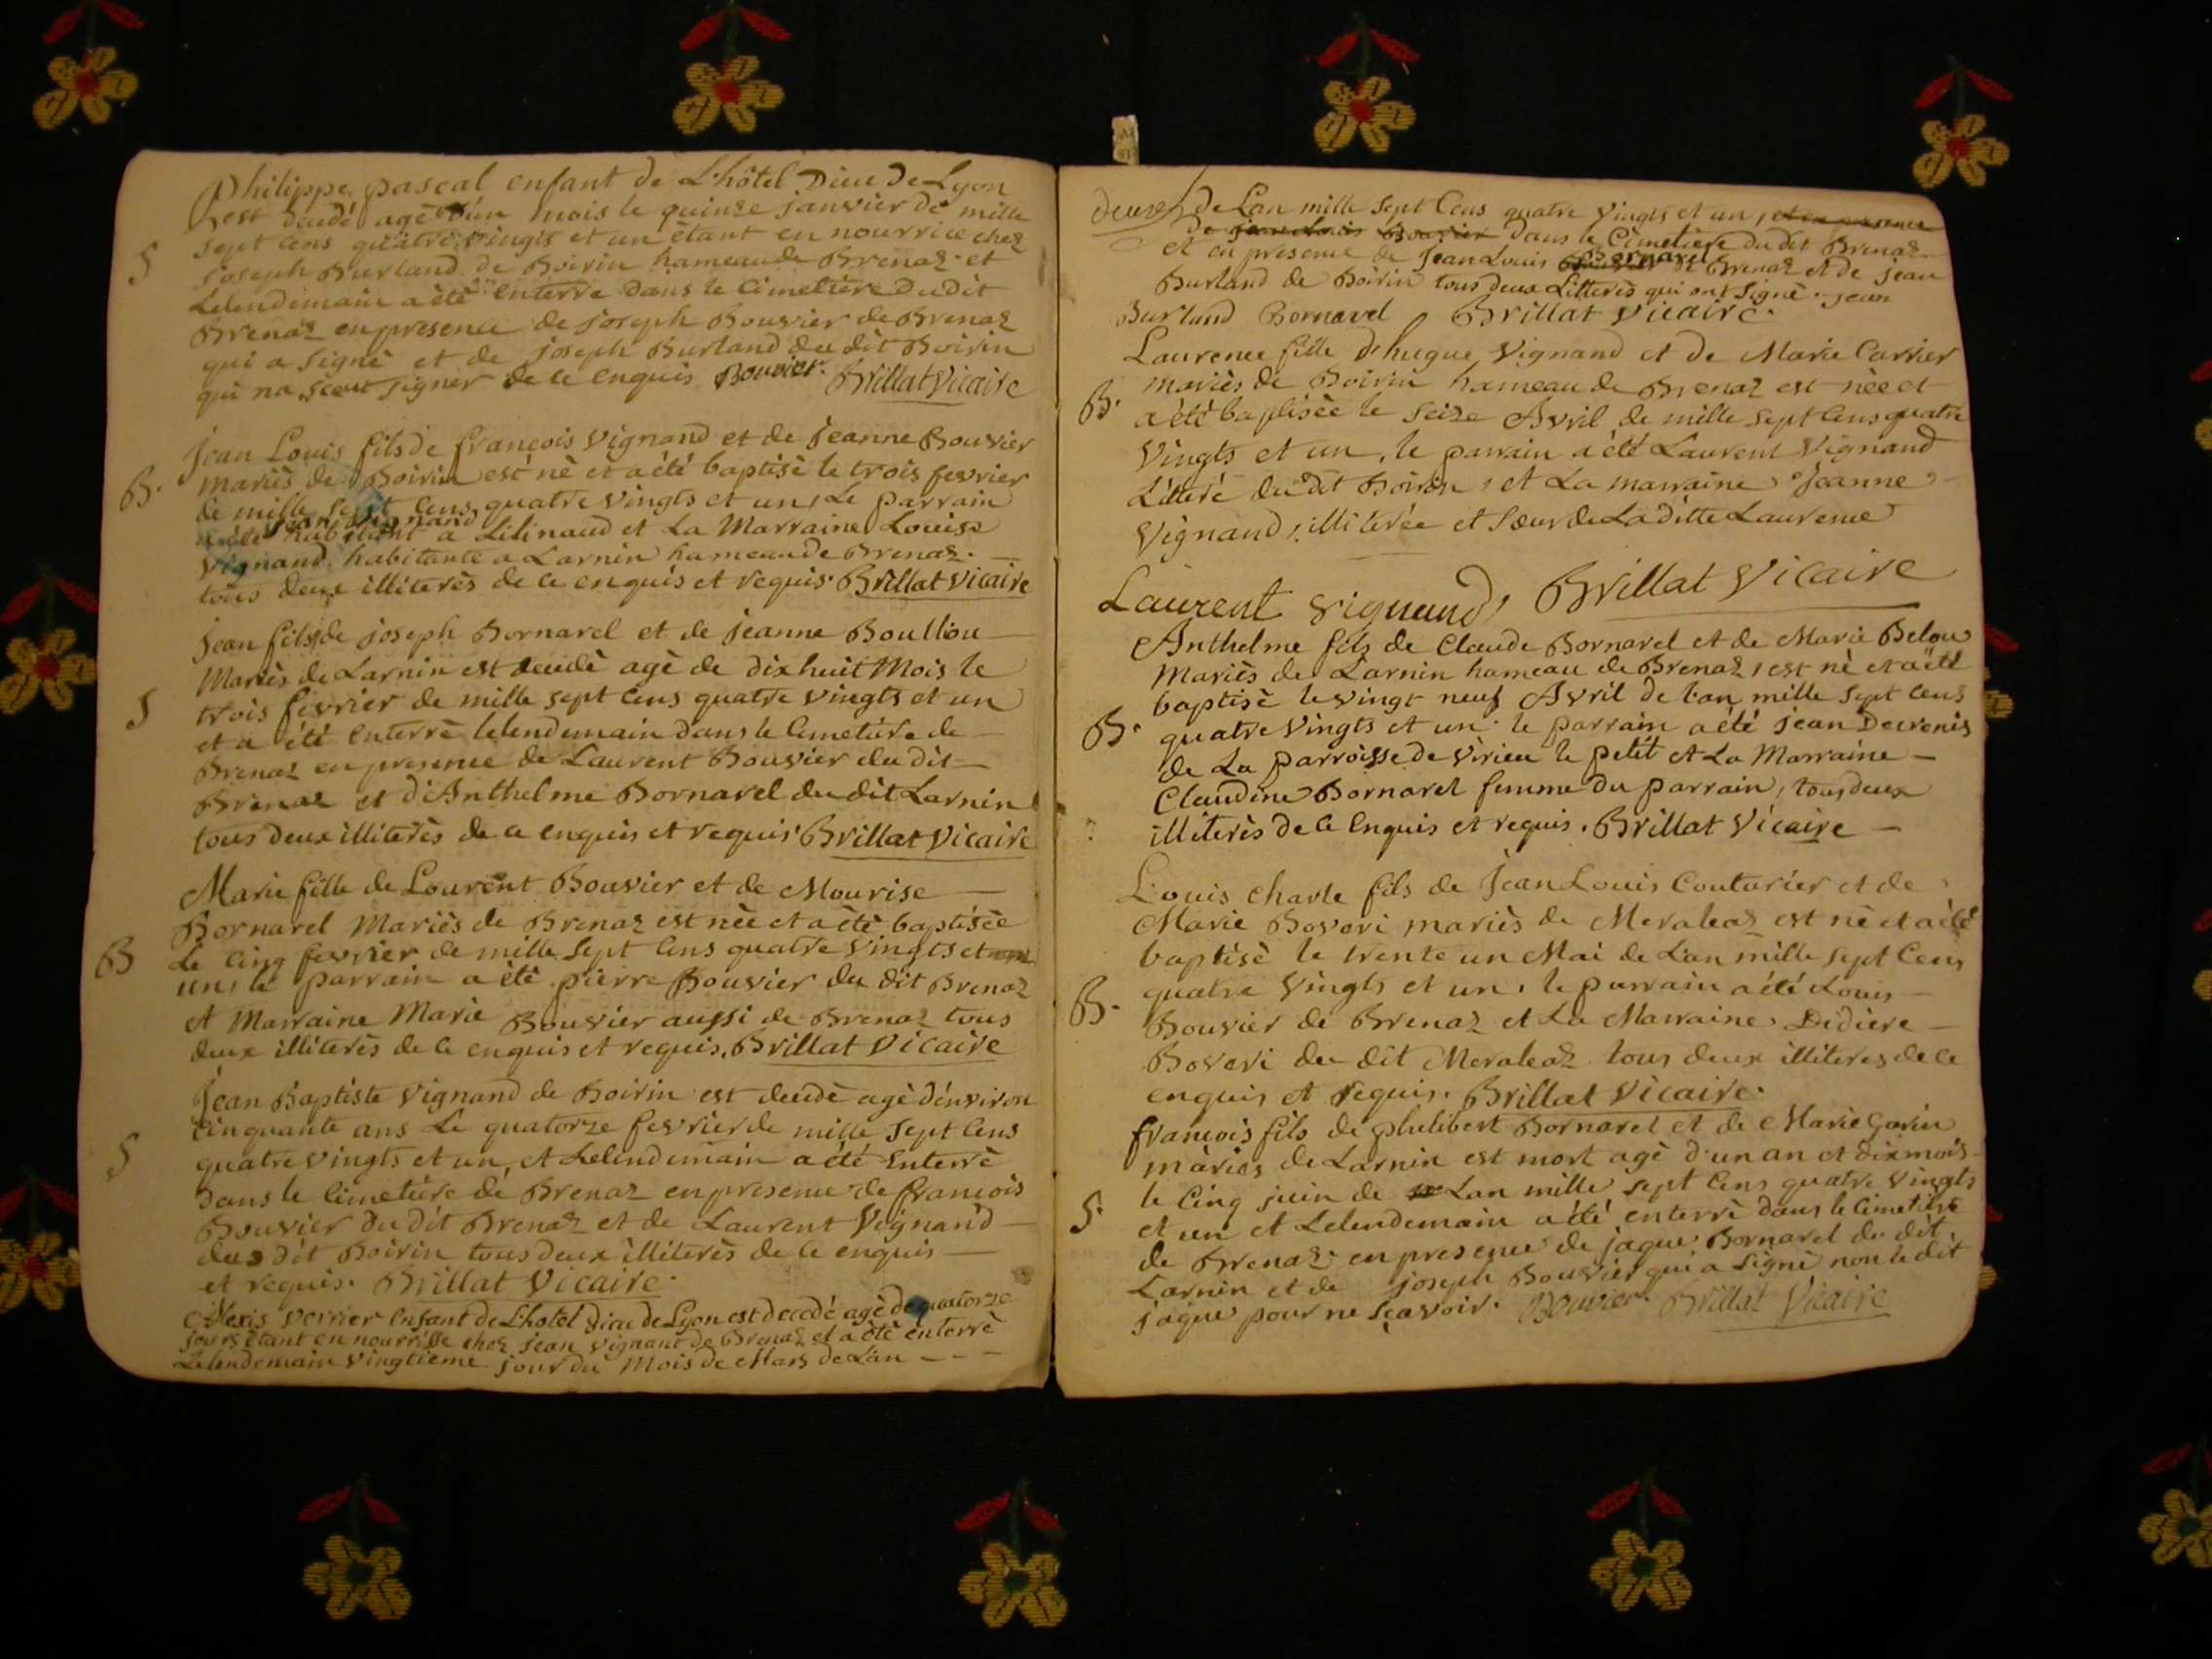 Philippe pascal enfant de L'hôtel Dieu de Lyon
est decedé agè d'un mois le quinze janvier de mille
sept cens quatre vingts et un etant en nourrice chez
S
joseph Burland de Boirin hameau de Brenaz et
Lelendemain a èté enterré dans le Cimetiere dudit
Brenaz en presence de joseph Bouvier de Brenaz
qui a signè et de joseph Burland du dit Boirin
qui na sceut signer de ce enquis Bouvier. Brillat Vicaire
Jean Louis fils de francois Vignand et de jeanne Bouvier
B.
mariès de Boirin est nè et a été baptisè le trois fevrier
de mille sept cens quatre vingts et un, Le parrain
jean vignand
a èté habitant a Lilinaud et La Marraine Louise
Vignand habitante a Larnin hameau de Brenaz.
tous deux illiterès de ce enquis et requis. Brillat Vicaire
jean fils de joseph Bornarel et de jeanne Boulliou
Mariès de Larnin est decedè agè de dix huit Mois le
S
trois fevrier de mille sept cens quatre vingts et un
et a été enterrè lelendemain dans le Cimetiére de
Brenaz en presence de Laurent Bouvier du dit
Brenaz et d'Anthelme Bornarel du dit Larnin
tous deux illiterès de ce enquis et requis Brillat Vicaire
Marie fille de Lourent Bouvier et de Mourise
Bornarel Mariès de Brenaz est nèe et a èté baptisèe
B
Le cinq fevrier de mille sept cens quatre vingts et
un, le parrain a èté pierre Bouvier du dit Brenaz
et Marraine Marie Bouvier aussi de Brenaz tous
deux illiterès de ce enquis et requis. Brillat Vicaire
Jean Baptiste Vignand de Boirin est decedè agè d'environ
Cinquante ans Le quatorze fevrier de mille sept cens
S
quatre vingts et un, et Lelendemain a été enterrè
dans le Cimetiére de Brenaz en presence de francois
Bouvier du dit Brenaz et de Laurent Vignand
du dit Boirin tous deux illiterès de ce enquis
et requis. Brillat Vicaire.
Alexis Verrier enfant de L'hotel Dieu de Lyon est decedé agè de quatorze
jours etant en nourrisse chez jean vignant de Brenaz et a èté enterrè
Lelendemain vingtieme jour du Mois de Mars de L'an
deuxes de Lan mille sept Cens quatre Vingts et un, et en presence
de jean Louis Bouvier dans le Cimetiere du dit Brenaz
et en presence de jean Louis Bornarel de Brenaz et de jean
Burland de Boirin tous deux Litterès qui ont signè. jean
Burland Bornarel Brillat Vicaire.
Laurence fille d'hugue Vignand et de Marie Carrier
mariès de Boirin hameau de Brenaz est nèe et
B.
a été baptisèe le seize Avril de mille sept cens quatre
Vingts et un, le parrain a été Laurent Vignand
Litteré du dit Boirin, et La marraine Jeanne
Vignand, illiterée et soeur de La ditte Laurence
Laurent vignand, Brillat Vicaire
Anthelme fils de Claude Bornarel et de Marie Belou
Mariès de Larnin hameau de Brenaz, est nè et a èté
baptisè le vingt neuf Avril de l'an mille sept cens
B.
quatre vingts et un. le parrain a été jean Decrenis
de La parroisse de Virieu le petit et La Marraine
Claudine Bornarel femme du parrain, tous deux
illiterès de ce enquis et requis. Brillat Vicaire
Louis Charle fils de Jean Louis Couturier et de
Marie Boveri mariès de Meraleaz est nè et a èté
baptisè le trente un Mai de L'an mille sept Cens
B.
quatre Vingts et un, le parrain a été Louis
Bouvier de Brenaz et La Marraine Didiere
Boveri du dit Meraleaz tous deux illiteres de ce
enquis et requis. Brillat Vicaire.
francois fils de philibert Bornarel et de Marie Gorin
mariès de Larnin est mort agè d'un an et dix mois
le Cinq juin de Lan mille sept Cens quatre vingts
S.
et un et Lelendemain a été enterrè dans le Cimetiere
de Brenaz en presence de jaque Bornarel du dit
Larnin et de joseph Bouvier qui a signè non le dit
jaque pour ne sçavoir. Bouvier. Brillat Vicaire